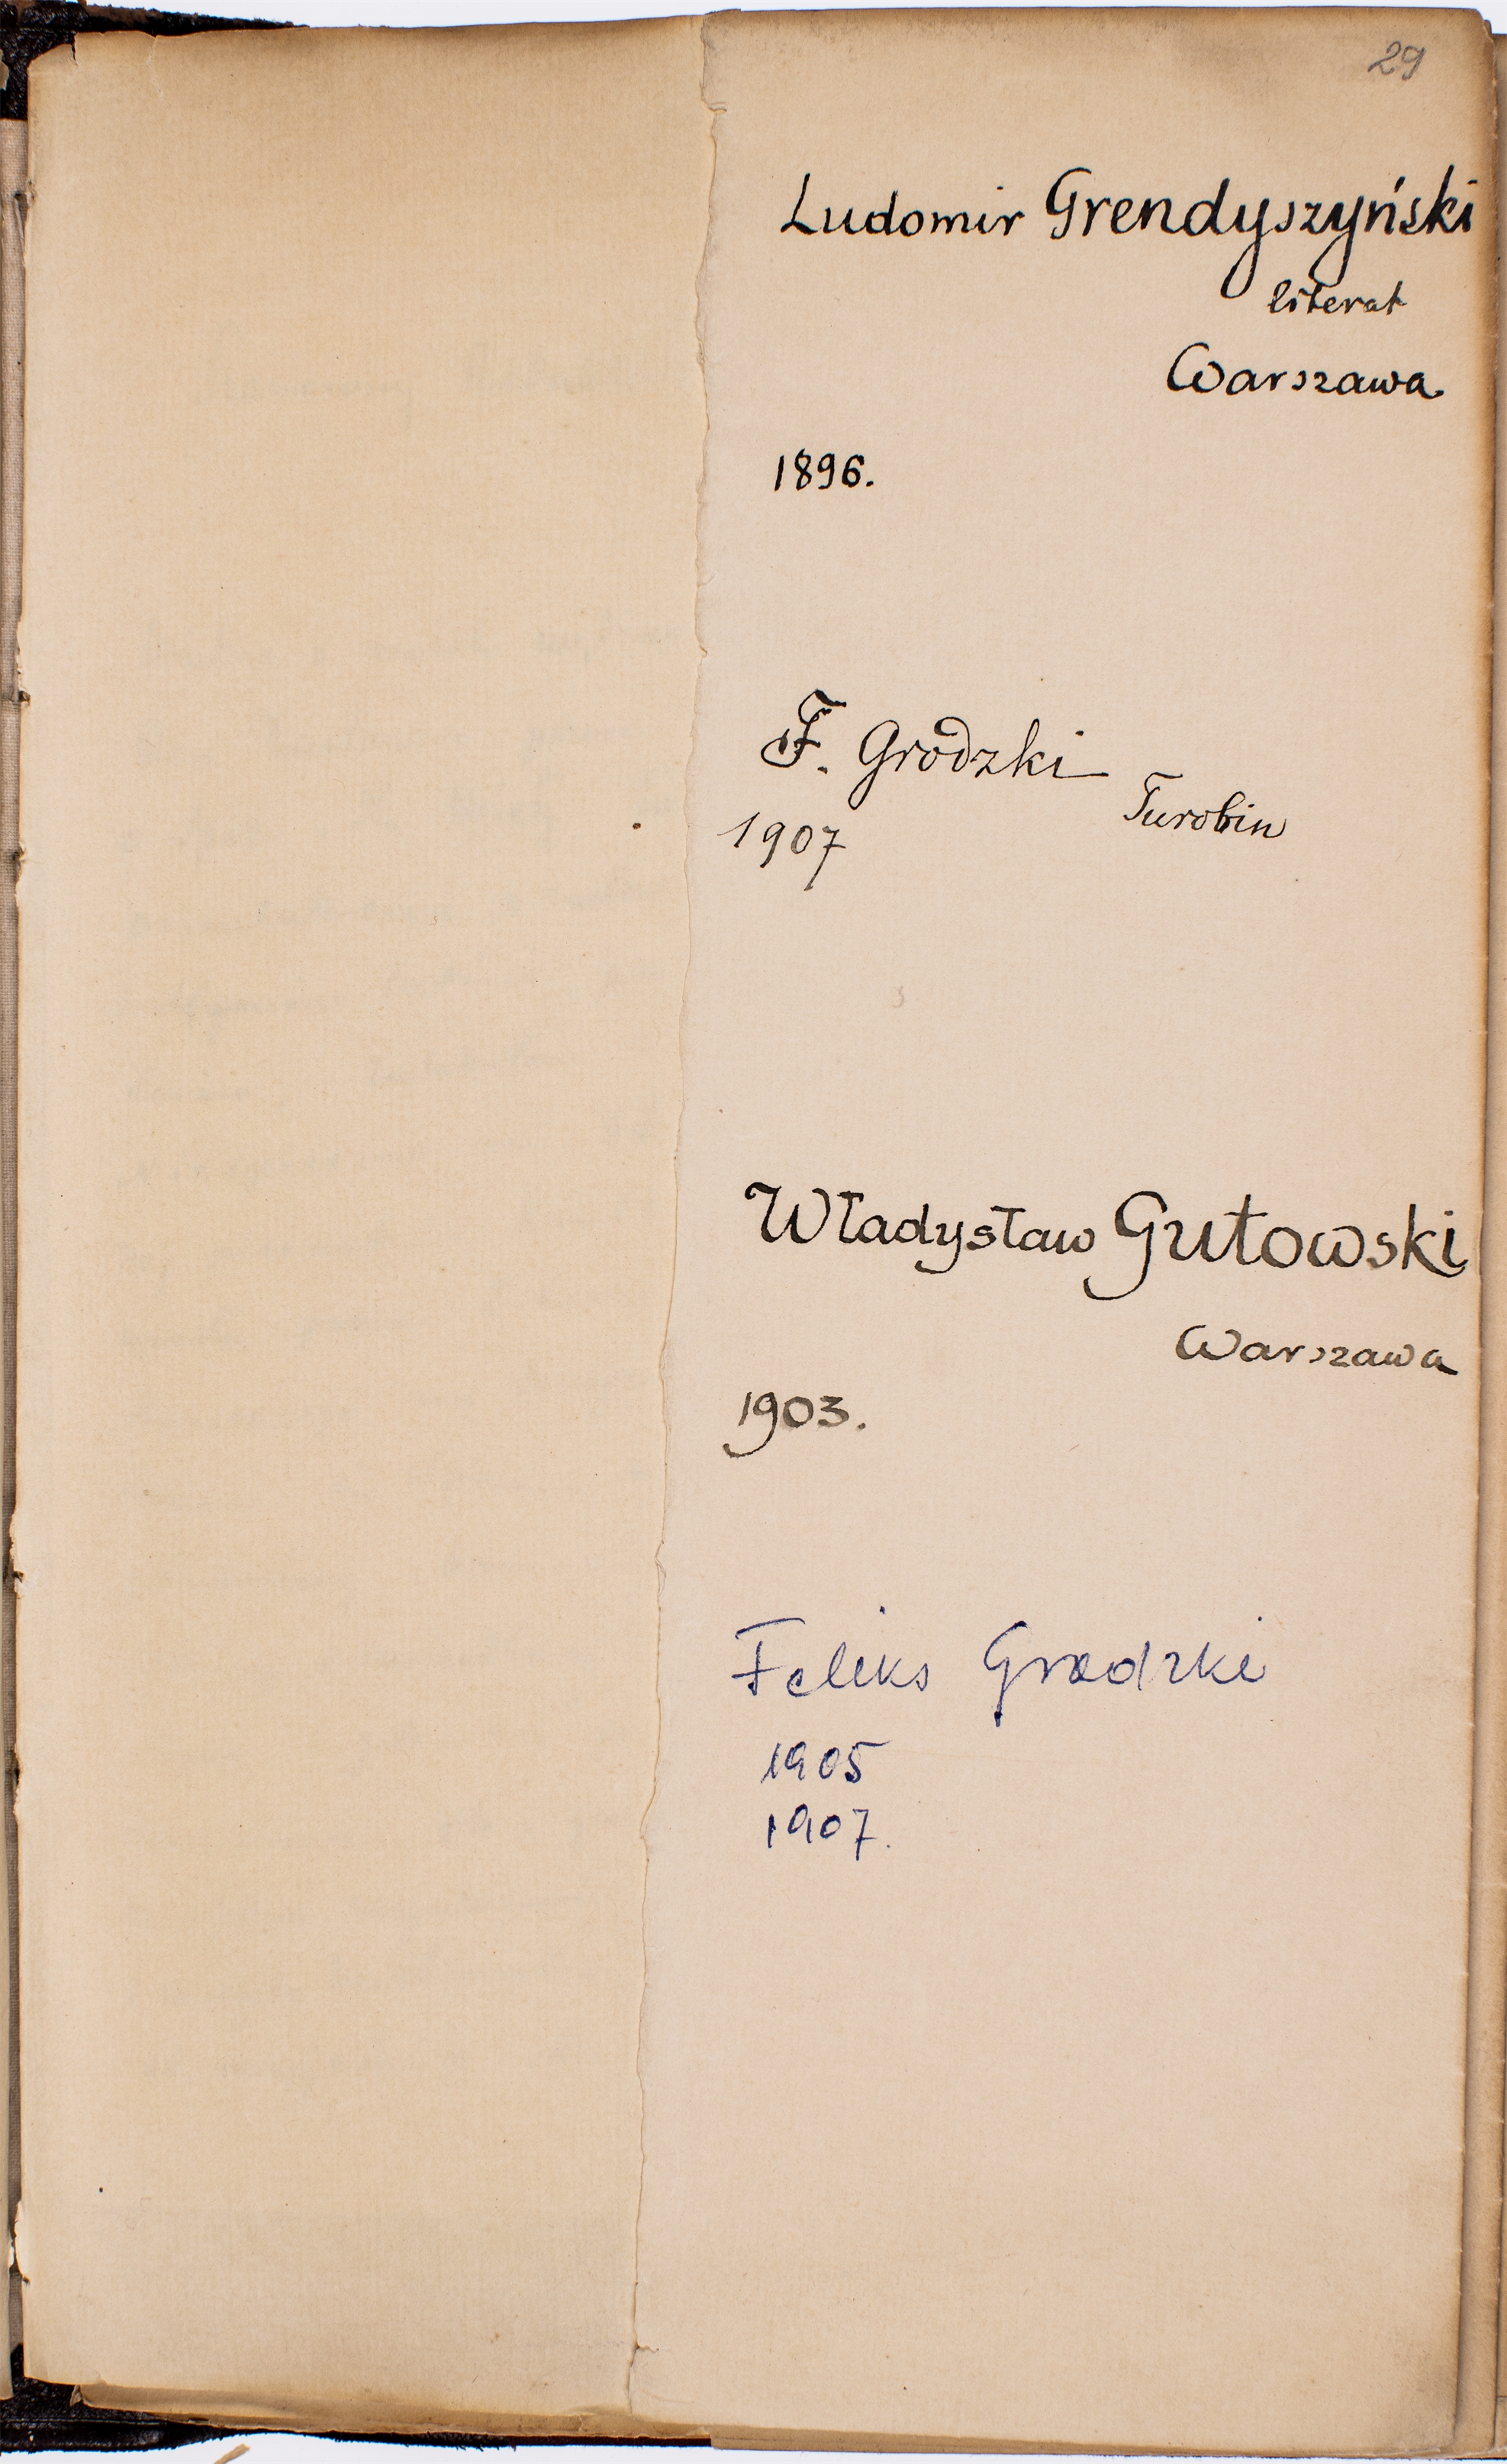 29
Ludomir Grendyszyński
literat
Warszawa
1896.
F. Grodzki
Turobin
1907
Władysław Gutowski
Warszawa
1903.
Feliks Grodzki
1905
1907.